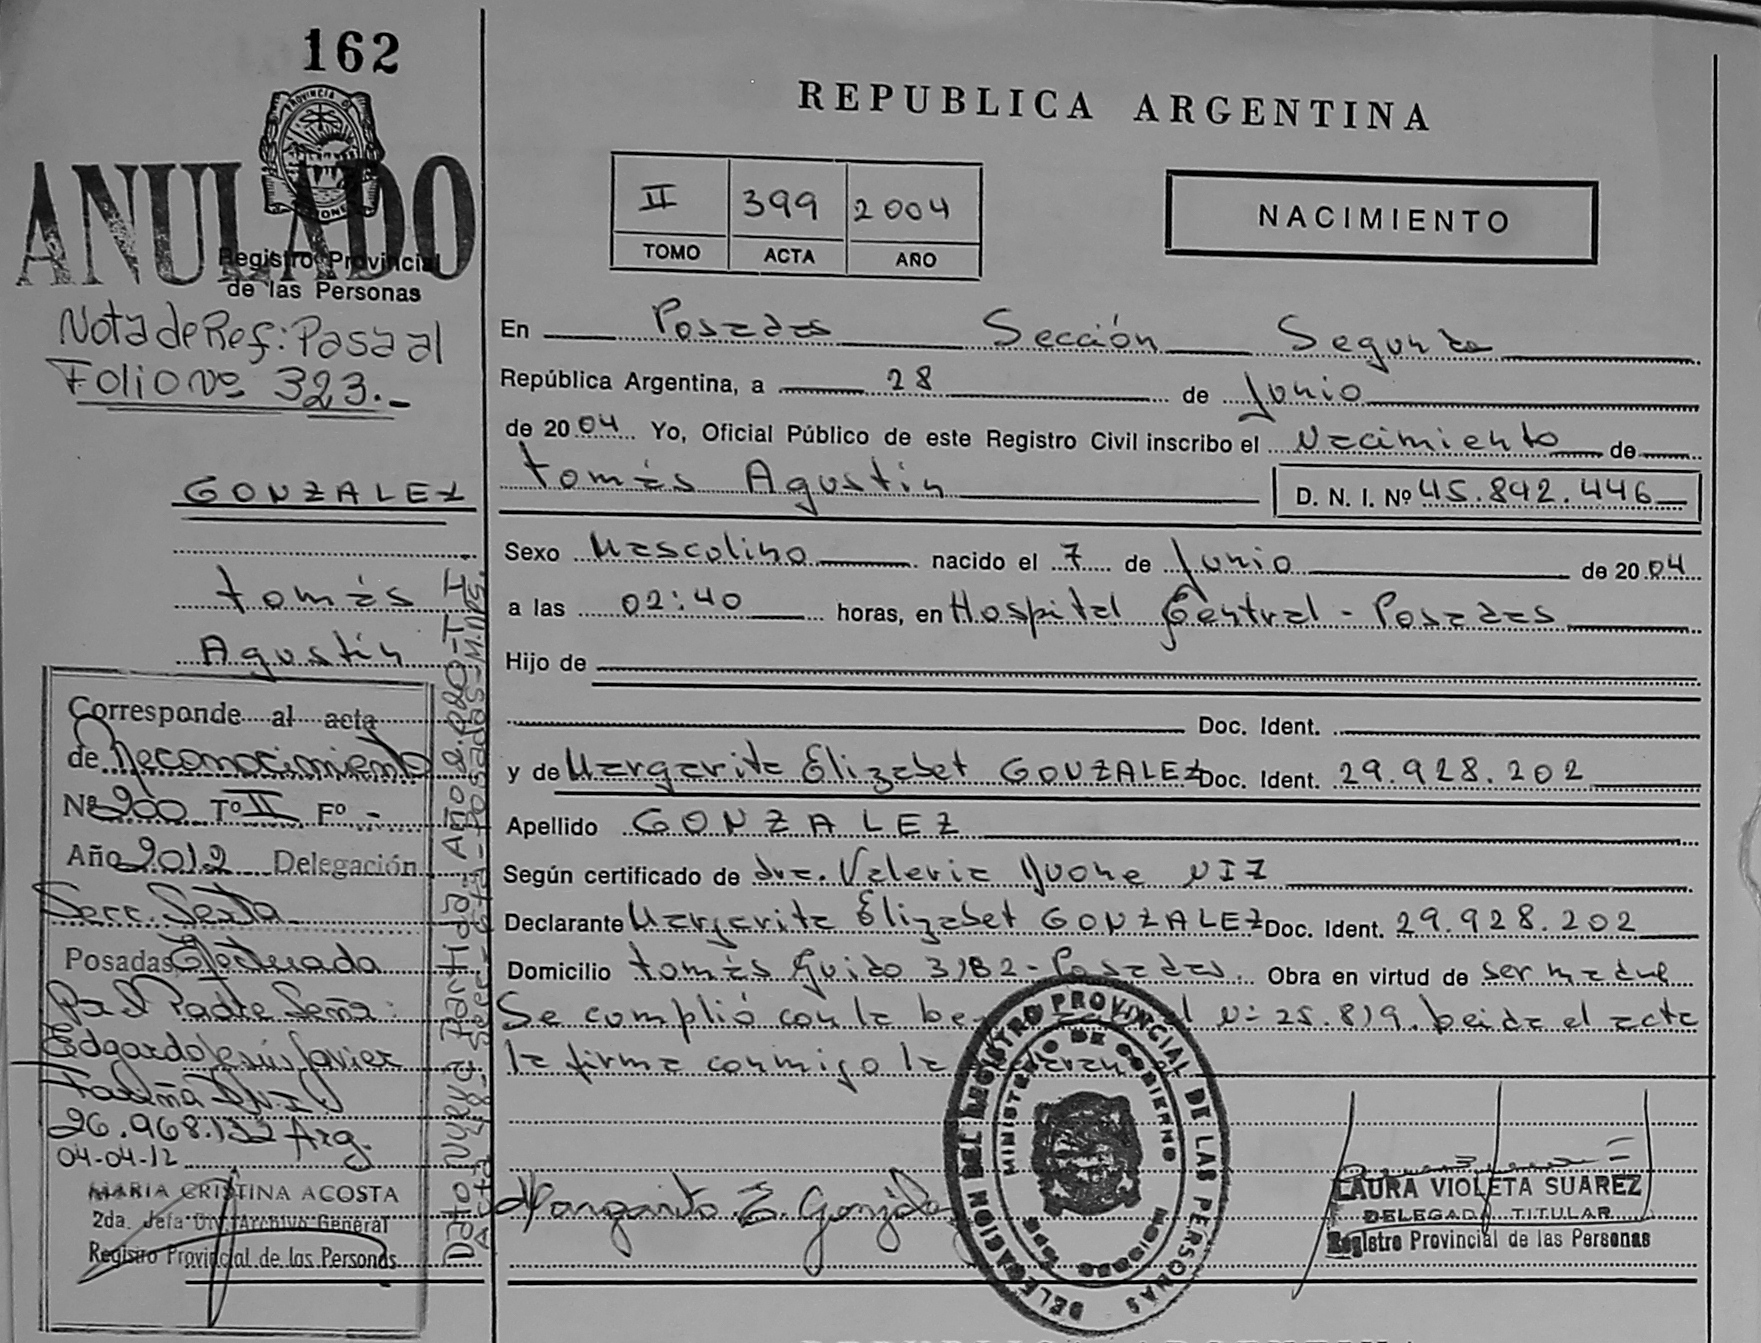 162
PROVINCIA D
MISIONES
ANULADO
Registro Provincial
de las Personas
Nota de Ref: Pasa al
Folio Nº 323.-
GONZALEZ
Tomás
Agustín
Corresponde al acta
de Reconocimiento
Nº 900 Tº II Fº -
Año 2012 Delegación
Secc. Sexta
Posadas Efectuada
Por el Padre Señor:
Edgardo Jesús Javier
Fariña D.N.I.
26.968.132 Arg.
04-04-12
MARIA CRISTINA ACOSTA
2da. Jefa Div. Archivo General
Registro Provincial de las Personas
Dato Nueva Partida: Año
Acta Posadas - Mnes.
REPUBLICA ARGENTINA
II 399 2004
TOMO ACTA AÑO
NACIMIENTO
En Posadas Sección Segunda
República Argentina, a 28 de Junio
de 2004 Yo, Oficial Público de este Registro Civil inscribo el Nacimiento de
Tomás Agustín D. N. I. Nº 45.842.446
Sexo Masculino nacido el 7 de Junio de 2004
a las 02:40 horas, en Hospital Central - Posadas
Hijo de
Doc. Ident.
y de Margarita Elizabet GONZALEZ Doc. Ident. 29.928.202
Apellido GONZALEZ
Según certificado de dra. Valeria Yvone NIZ
Declarante Margarita Elizabet GONZALEZ Doc. Ident. 29.928.202
Domicilio Tomás Guido 3182 - Posadas. Obra en virtud de ser madre
Se cumplió con la N: 25.819. Leida el acta
la firma conmigo la
DELEGACION DEL REGISTRO PROVINCIAL DE LAS PERSONAS
MINISTERIO DE GOBIERNO
MISIONES
Margarita E. González
LAURA VIOLETA SUAREZ
DELEGADA TITULAR
Registro Provincial de las Personas